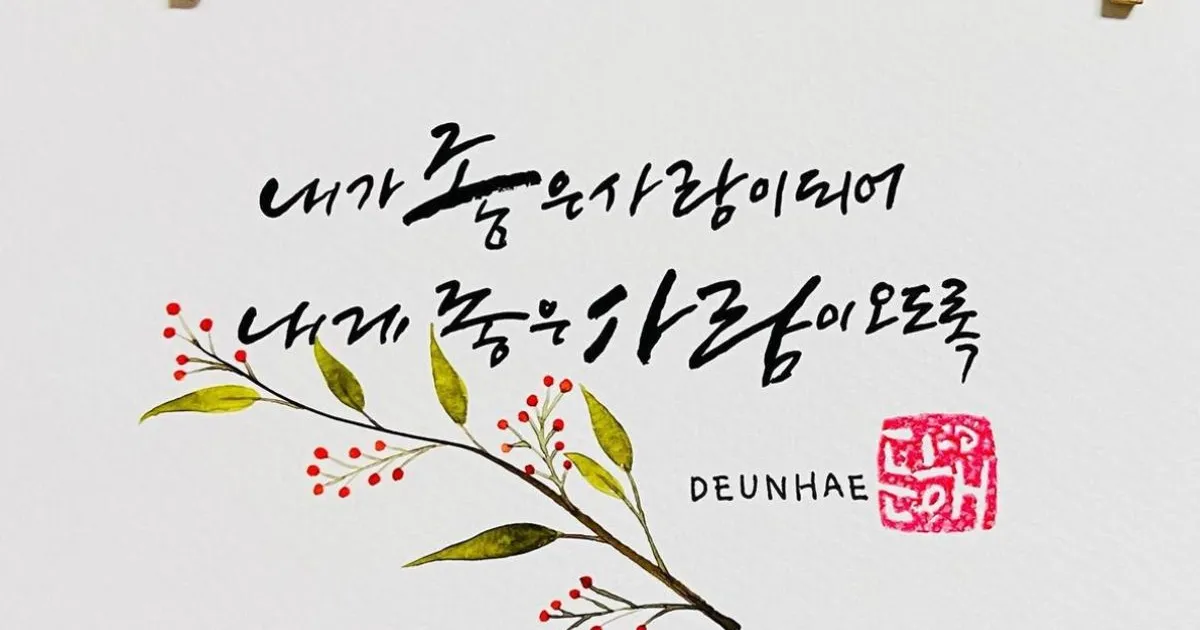 내가 좋은 사람이 되어
내게 좋은 사람이 오도록
DEUNHAE
든해